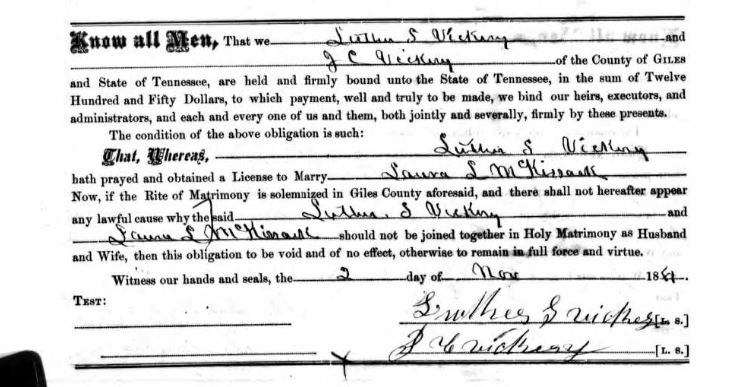 Know all Men, That we Luther S Vickery and
J C Vickery of the County of GILES
and State of Tennessee, are held and firmly bound unto the State of Tennessee, in the sum of Twelve
Hundred and Fifty Dollars, to which payment, well and truly to be made, we bind our heirs, executors, and
administrators, and each and every one of us and them, both jointly and severally, firmly by these presents.
The condition of the above obligation is such:
That, Whereas, Luther S Vickery
hath prayed and obtained a License to Marry Laura L McKissack
Now, if the Rite of Matrimony is solemnized in Giles County aforesaid, and there shall not hereafter appear
any lawful cause why the said Luther S Vickery and
Laura L McKissack should not be joined together in Holy Matrimony as Husband
and Wife, then this obligation to be void and of no effect, otherwise to remain in full force and virtue.
Witness our hands and seals, the 2 day of Nov 188
TEST:
Luther S Vickery [L. S.]
J C Vickery [L. S.]